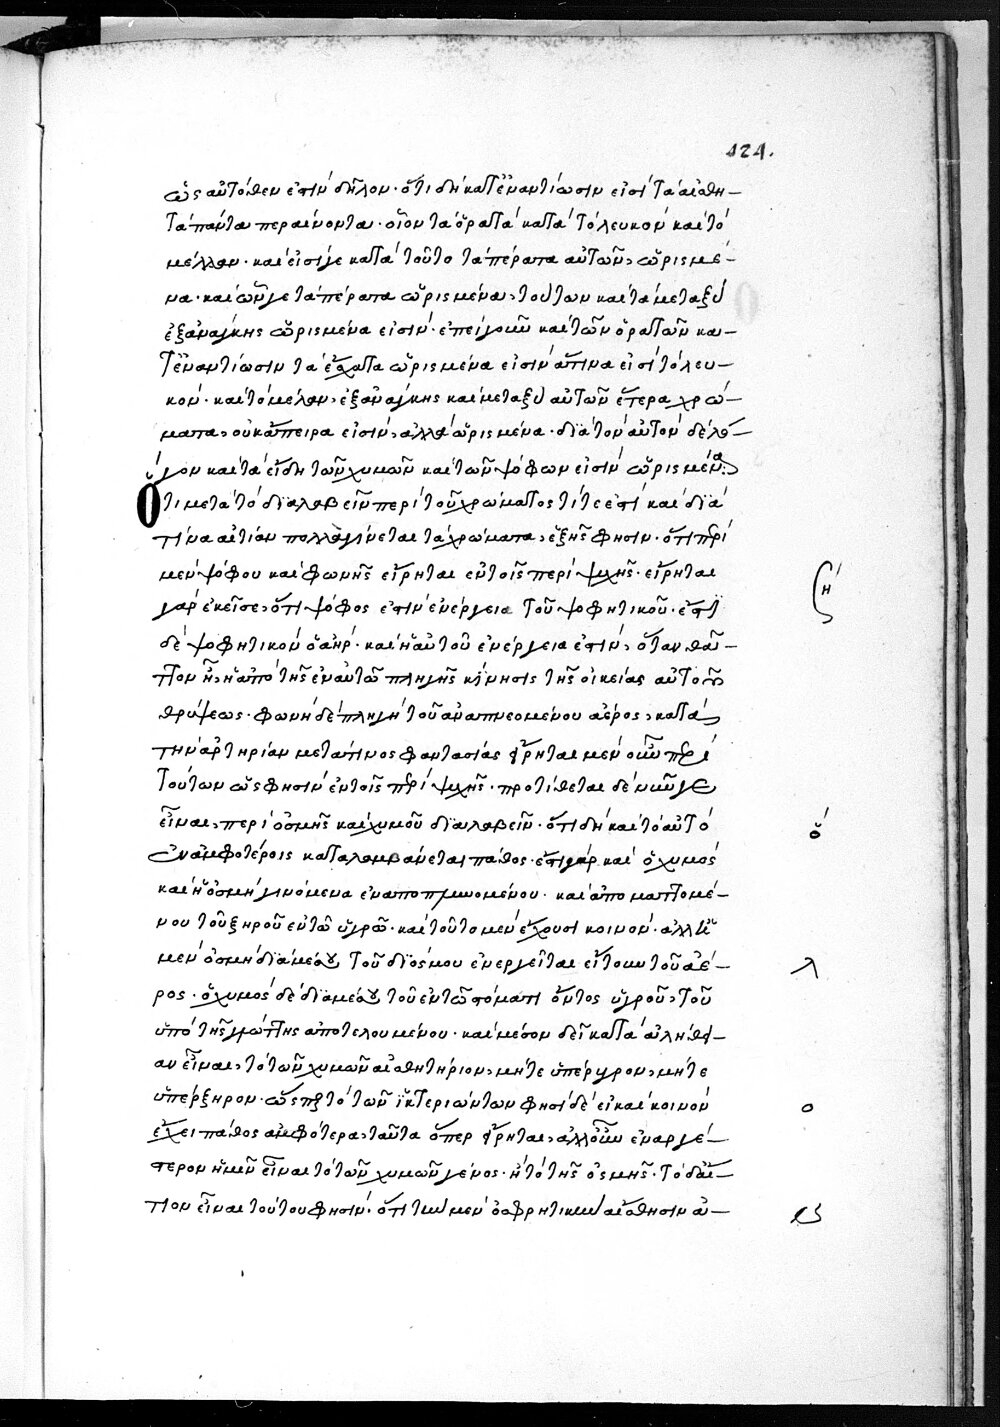 124.
ὡς αὐτόθεν ἐστὶν δῆλον. ὅτι δὴ κατ' ἐναντίωσιν εἰσὶ τὰ αἰσθη-
τὰ πάντα περαίνονται. οἷον τὰ ὁρατὰ κατὰ τὸ λευκὸν καὶ τὸ
μέλλαν. καὶ εἰσί γε κατὰ τοῦτο τὰ πέρατα αὐτῶν, ὡρισμέ-
να. καὶ ὧν γε τὰ πέρατα ὡρισμένα, τούτων καὶ τὰ μεταξὺ
ἐξ ἀνάγκης ὡρισμένα εἰσίν. ἐπεὶ γοῦν καὶ τῶν ὁρατῶν κα-
τ' ἐναντίωσιν τὰ ἔσχατα ὡρισμένα εἰσὶν ἅτινα εἰσὶ τὸ λευ-
κόν. καὶ τὸ μέλαν, ἐξ ἀνάγκης καὶ μεταξὺ αὐτῶν ἕτερα χρώ-
ματα, οὐκ ἄπειρα εἰσὶν, ἀλλὰ ὡρισμένα. διὰ τὸν αὐτὸν δὲ λό-
γον καὶ τὰ εἴδη τῶν χυμῶν καὶ τῶν ψόφων εἰσὶν ὡρισμένα.
Ὅτι μετὰ τὸ διαλαβεῖν περὶ τοῦ χρώματος τί τέ ἐστι καὶ διὰ
τίνα αἰτίαν πολλὰ γίνεται τὰ χρώματα, ἑξῆς φησιν. ὅτι περὶ
μὲν ψόφου καὶ φωνῆς εἴρηται ἐν τοῖς περὶ ψυχῆς. εἴρηται
γὰρ ἐκεῖσε, ὅτι ψόφος ἐστὶν ἐνέργεια τοῦ ψοφητικοῦ. ἔστι
δὲ ψοφητικὸν ὁ ἀήρ. καὶ ἡ αὐτοῦ ἐνέργεια ἐστὶν, ὅταν θᾶτ-
τον ᾖ, ἡ ἀπὸ τῆς ἐν αὐτῷ πληγῆς κίνησις τῆς οἰκείας αὐτοῦ
θρύψεως. φωνὴ δὲ πληγὴ τοῦ ἀναπνεομένου ἀέρος, κατὰ
τὴν ἀρτηρίαν μετά τινος φαντασίας εἴρηται μὲν οὖν περὶ
τούτων ὥς φησιν ἐν τοῖς περὶ ψυχῆς. προτίθεται δὲ νῦν γε
εἶναι, περὶ ὀσμῆς καὶ χυμοῦ διαλαβεῖν. ὅτι δὴ καὶ τὸ αὐτὸ
ἐν ἀμφοτέροις καταλαμβάνεται πάθος. ἔστι γὰρ καὶ ὁ χυμὸς
καὶ ἡ ὀσμὴ γινόμενα ἐναποπλυνομένου. καὶ ἀπο ματτομέ-
νου τοῦ ξηροῦ ἐν τῷ ὑγρῷ. καὶ τοῦτο μὲν ἔχουσι κοινόν. ἀλλ' ἡ
μὲν ὀσμὴ διὰ μέσου τοῦ διόσμου ἐνεργεῖται εἴτουν τοῦ ἀέ-
ρος. ὁ χυμὸς δὲ διὰ μέσου τοῦ ἐν τῷ στόματι ὄντος ὑγροῦ, τοῦ
ὑπὸ τῆς γλώττης ἀποτελουμένου. καὶ μέσον δεῖ κατὰ ἀλήθει-
αν εἶναι, τὸ τῶν χυμῶν αἰσθητήριον, μήτε ὑπέρυγρον, μήτε
ὑπέρξηρον. ὥσπερ τὸ τῶν ἰκτεριώντων φησὶ δὲ εἰ καὶ κοινὸν
ἔχει πάθος ἀμφότερα, ταῦτα ὅπερ εἴρηται, ἀλλ' οὖν ἐναργέ-
στερον ἡμῖν εἶναι τὸ τῶν χυμῶν γένος. ἢ τὸ τῆς ὀσμῆς. τὸ δ' αἴ-
τιον εἶναι τούτου φησίν. ὅτι τὴν μὲν ὀσφρητικὴν αἴσθησιν αὐ-